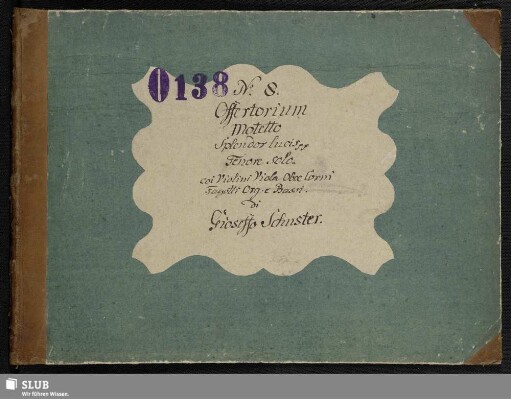 0138 No: 8.
Offertorium
Motetto
Splendor lucis pp
Tenore Solo.
coi Violini Viola Oboe Corni
Fagotti Org: e Bassi.
di
Gioseffo Schuster.
SLUB
Wir führen Wissen.